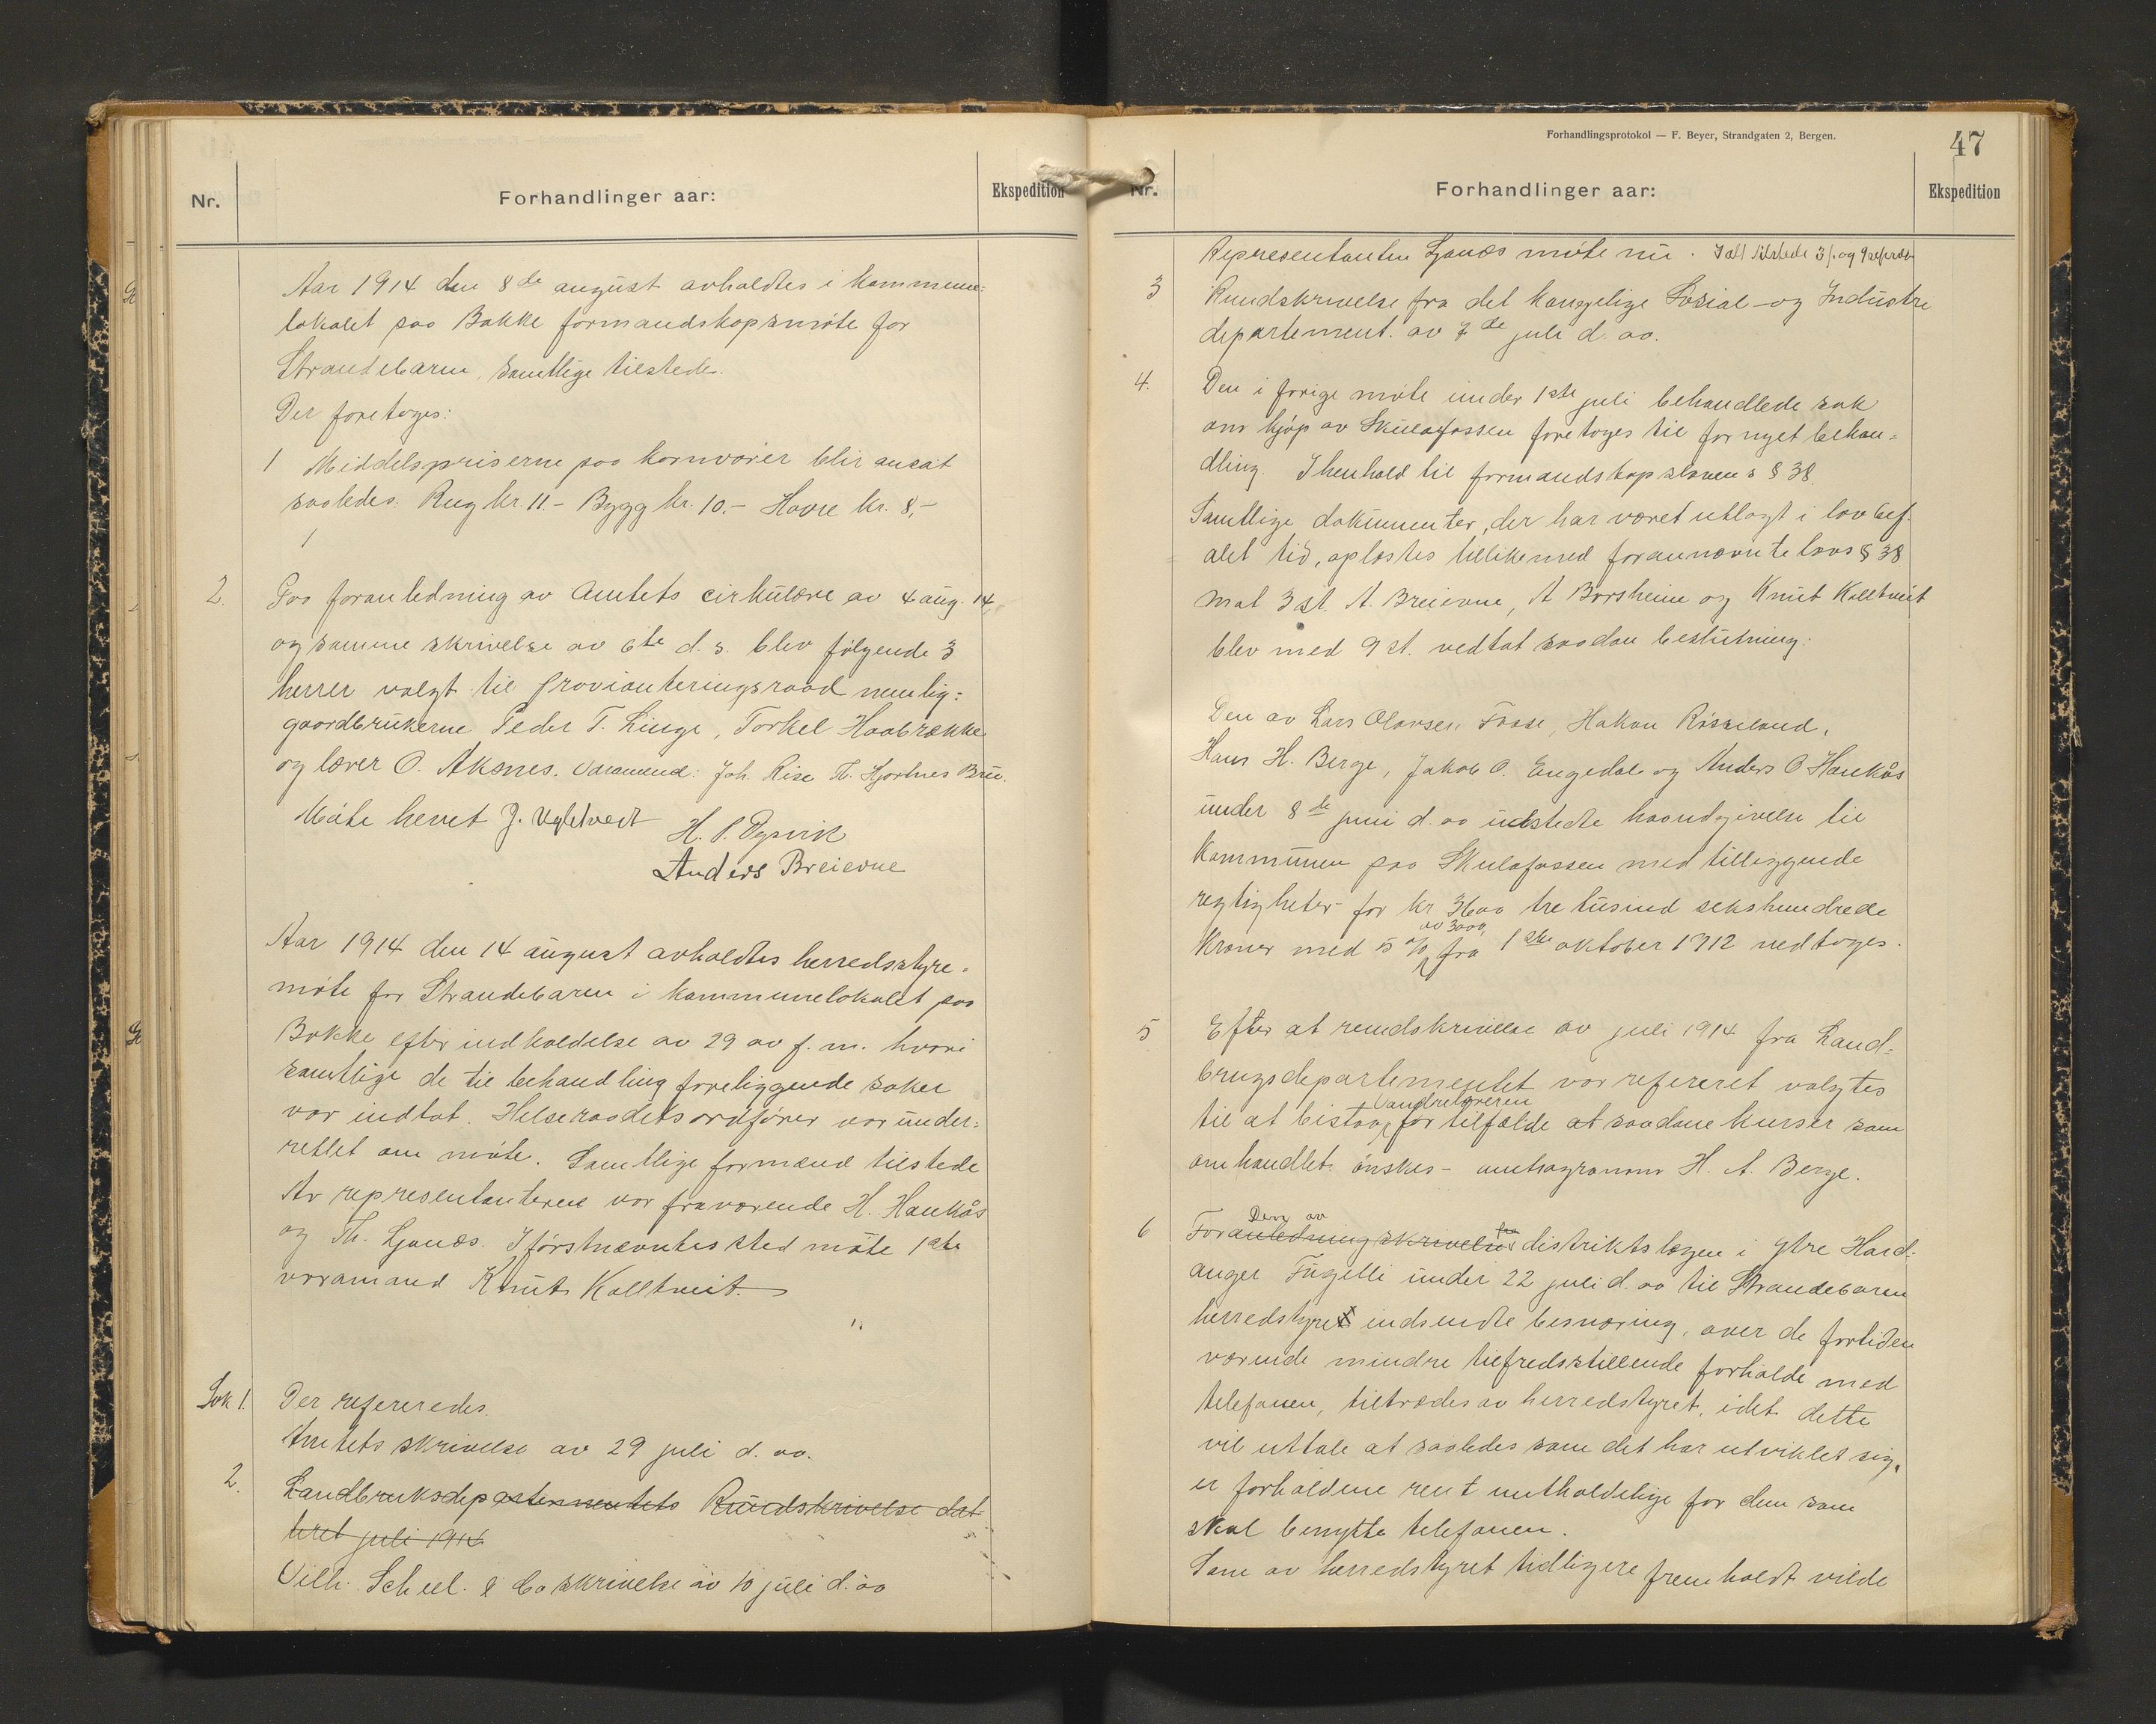 Nr.
Forhandlinger aar:
Ekspedition
Aar 1914 den 8de august avholdtes i kommune-
lokalet paa Bakke formandskapsmøte for
Strandebarm, samtlige tilstede.
Der foretoges:
1 Middelspriserne paa kornvarer blir ansat
saaledes: Rug kr. 11.- Bygg kr. 10.- Havre kr. 8,-
2. Paa foranledning av Amtets cirkulære av 4 aug. 14
og samme skrivelse av 6te d. s. blev følgende 3
herrer valgt til provianteringsraad nemlig:
gaardbrukerne Peder T. Linge, Torkel Haabrække
og lærer O. Aksnes. Varamend: Joh. Rise Th. Hjortnes
Møte hevet J. H. P. Dysvik
Anders Breievne
Aar 1914 den 14 august avholdtes herredsstyre-
møte for Strandebarm i kommunelokalet paa
Bakke efter indkaldelse av 29 av f. m. hvori
samtlige de til behandling foreliggende saker
var indtat. Helseraadets ordfører var under-
rettet om møte. Samtlige formænd tilstede
Av representanterne var fraværende H. Haukås
og Th. Ljonæs. I førstnævntes sted møte 1ste
varamand Knut Kalltveit.
Sak 1. Der refereredes.
Amtets skrivelse av 29 juli d. aa.
2. Landbruksdepartementets Rundskrivelse dat-
teret juli 1914
Vilh. Scheel & Co skrivelse av 10 juli d. aa
Forhandlingsprotokol — F. Beyer, Strandgaten 2, Bergen.
47
Nr.
Forhandlinger aar:
Ekspedition
Representanten Ljonæs møte nu. Ialt tilstede
3 Rundskrivelse fra det kongelige Sosial- og Industri
departement. av 7de juli d. aa.
4. Den i forige møte under 1ste juli behandlede sak
om kjøp av Skulafossen foretoges til fornyet behan-
dling. I henhold til formandskapslovens § 38.
Samtlige dokumenter, der har været utlagt i lovbef-
alet tid, oplæstes tillikemed forannævnte lovs § 38
Mot 3 st. A. Breievne, A Børsheim og Knut Kalltveit
blev med 9 st. vedtat saadan beslutning:
Den av Lars Olavsen Fosse, Hakon Risseland,
Hans H. Berge, Jakob O. Engedal og Anders O Haukås
under 8de juni d. aa utstedte haandgivelse til
Kommunen paa Skulafossen med tilliggende
regtigheter for kr 3600 tre tusind sekshundrede
av 3000,
Kroner med 5 % fra 1ste oktober 1912 vedtoges.
5 Efter at rundskrivelse av juli 1914 fra Land-
brugsdepartementet var refereret valgtes
vandrelæreren
til at bistaa for tilfælde at saadane kurser som
omhandlet ønskes - amtsagronom H. A. Berge.
Den av
6 Foranledning skrivelse fra distriktslægen i Ytre Hard-
anger Fugelli under 22 juli d. aa til Strandebarm
herredstyret indsendte besværing, over de fortiden
værende mindre tilfredsstillende forholde med
telefonen, tiltrædes av herredstyret, idet dette
vil uttale at saaledes som det har utviklet sig,
er forholdene rent uutholdelige for dem som
skal benytte telefonen.
Som av herredstyret tidligere fremholdt vilde